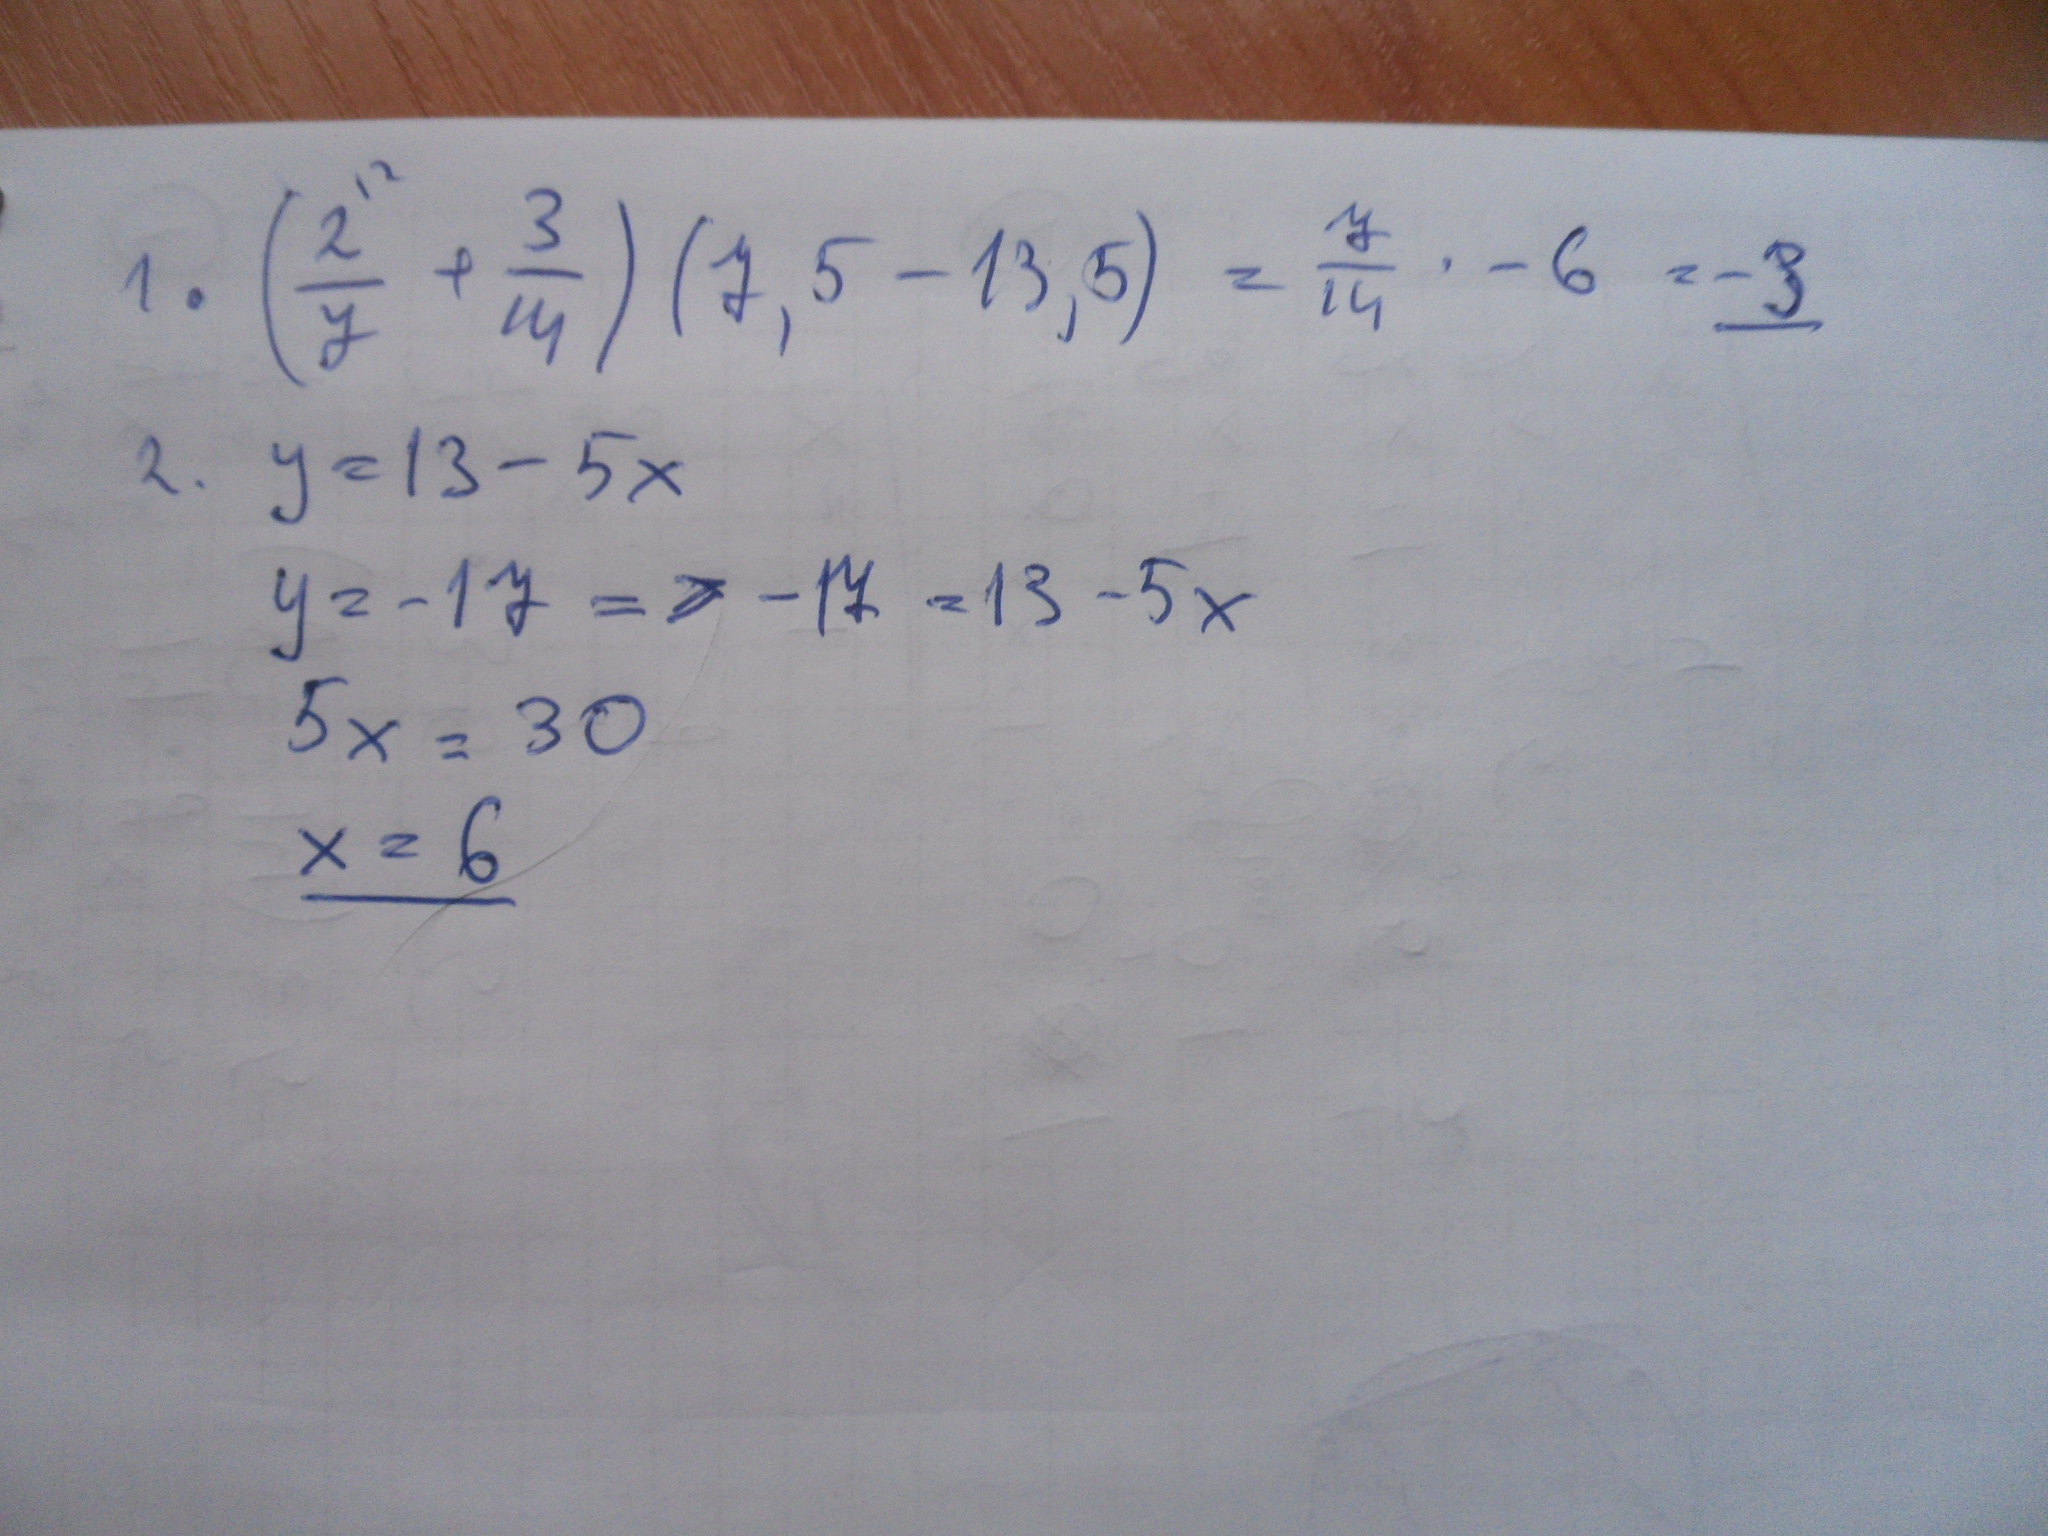 1. (2/7 ^(2 + 3/14) (7,5 - 13,5) = 7/14 · - 6 = -3
2. y = 13 - 5x
y = -17 => -17 = 13 - 5x
5x = 30
x = 6